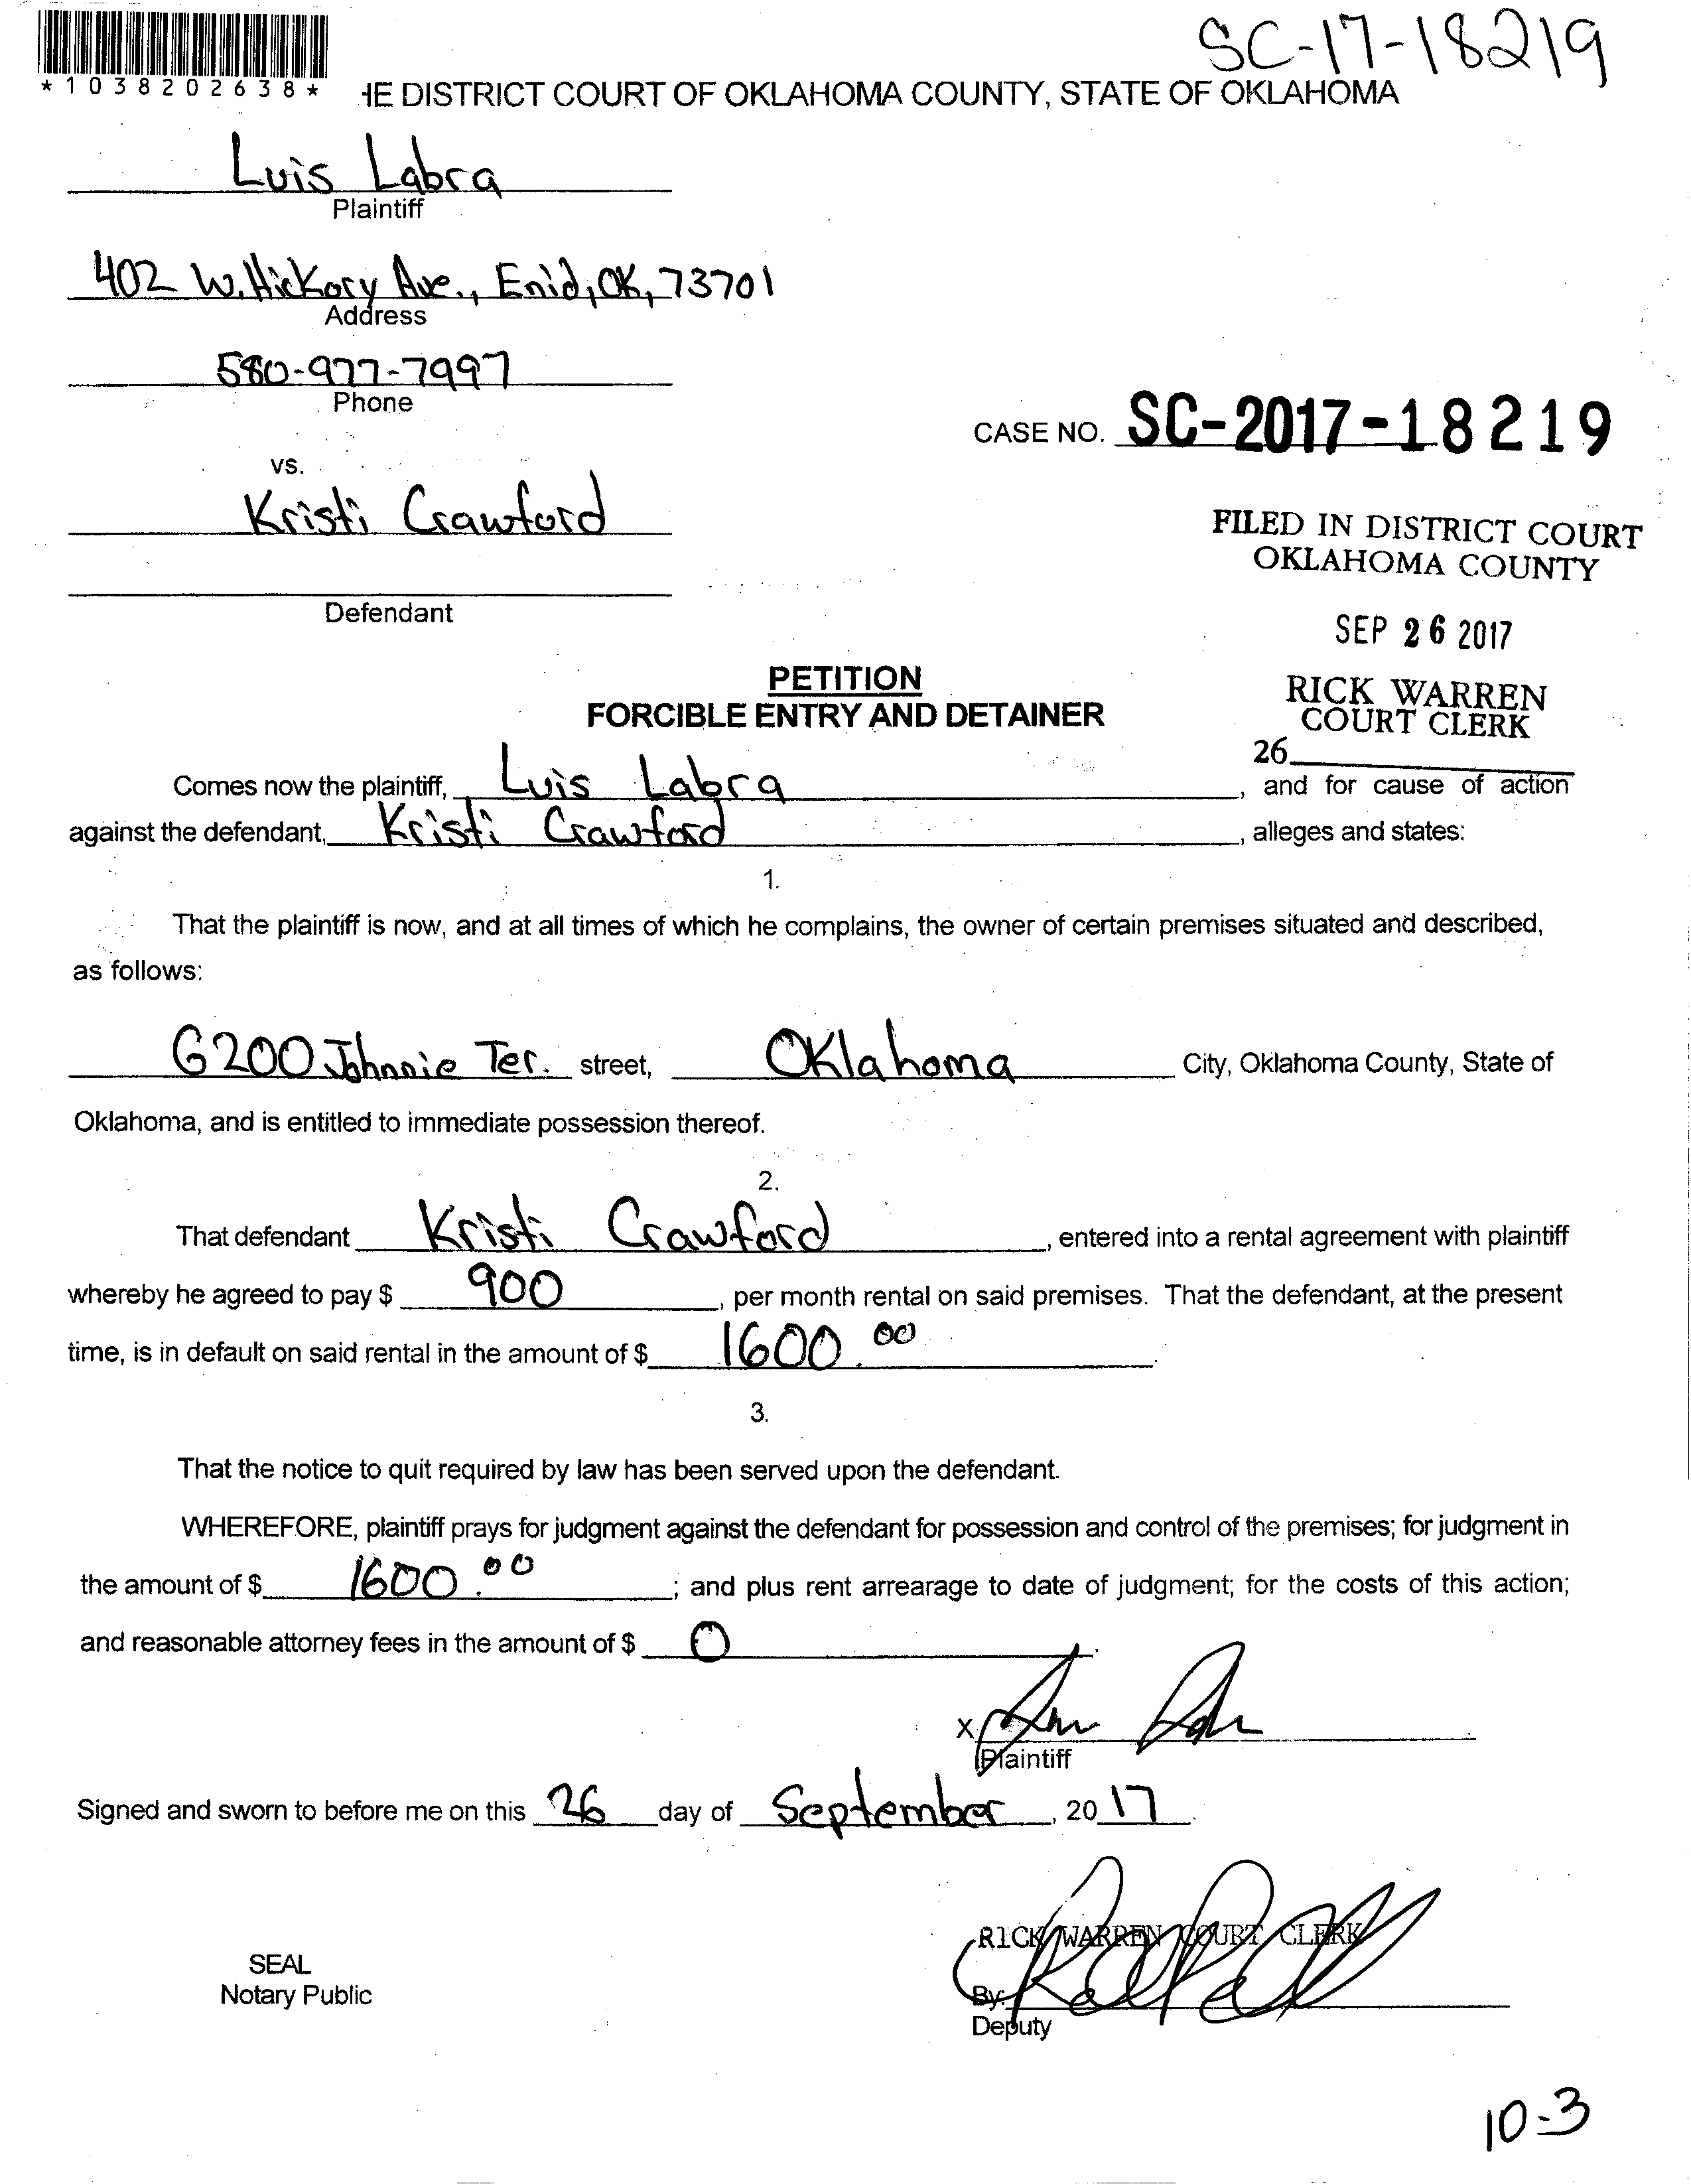 SC-17-18219
*1038202638*
HE DISTRICT COURT OF OKLAHOMA COUNTY, STATE OF OKLAHOMA
Luis Labra
Plaintiff
402 W. Hickory Ave., Enid, OK, 73701
Address
580-977-7997
Phone
CASE NO. SC-2017-18219
vs.
Kristi Crawford
Defendant
FILED IN DISTRICT COURT
OKLAHOMA COUNTY
SEP 26 2017
RICK WARREN
COURT CLERK
26
PETITION
FORCIBLE ENTRY AND DETAINER
Comes now the plaintiff, Luis Labra, and for cause of action
against the defendant, Kristi Crawford, alleges and states:
1.
That the plaintiff is now, and at all times of which he complains, the owner of certain premises situated and described,
as follows:
6200 Johnnie Ter. street, Oklahoma City, Oklahoma County, State of
Oklahoma, and is entitled to immediate possession thereof.
2.
That defendant Kristi Crawford, entered into a rental agreement with plaintiff
whereby he agreed to pay $ 900, per month rental on said premises. That the defendant, at the present
time, is in default on said rental in the amount of $ 1600.00.
3.
That the notice to quit required by law has been served upon the defendant.
WHEREFORE, plaintiff prays for judgment against the defendant for possession and control of the premises; for judgment in
the amount of $ 1600.00; and plus rent arrearage to date of judgment; for the costs of this action;
and reasonable attorney fees in the amount of $ 0.
X
Plaintiff
Signed and sworn to before me on this 26 day of September, 2017.
RICK WARREN COURT CLERK
SEAL
Notary Public
By:
Deputy
10-3